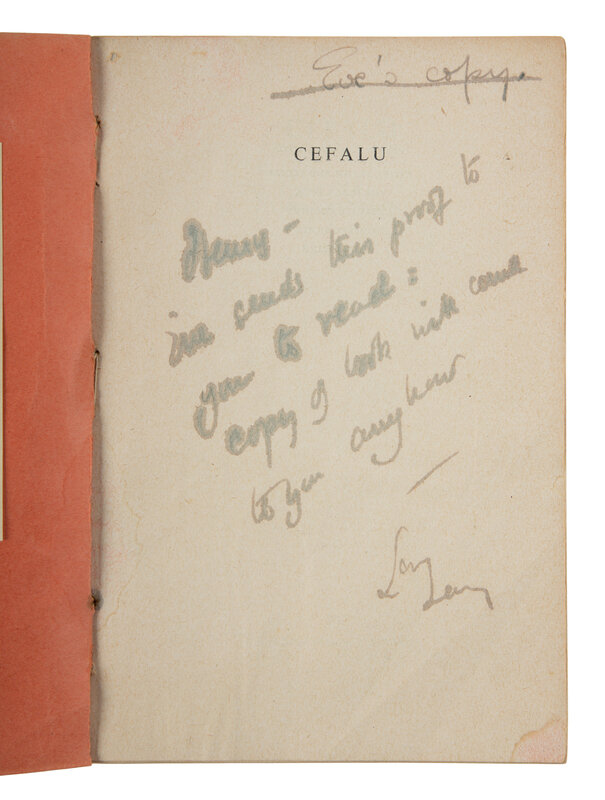 Eve's copy.
CEFALU
Henry –
sends this proof to
you to read:
copy of book will come
to you anyhow.
Larry